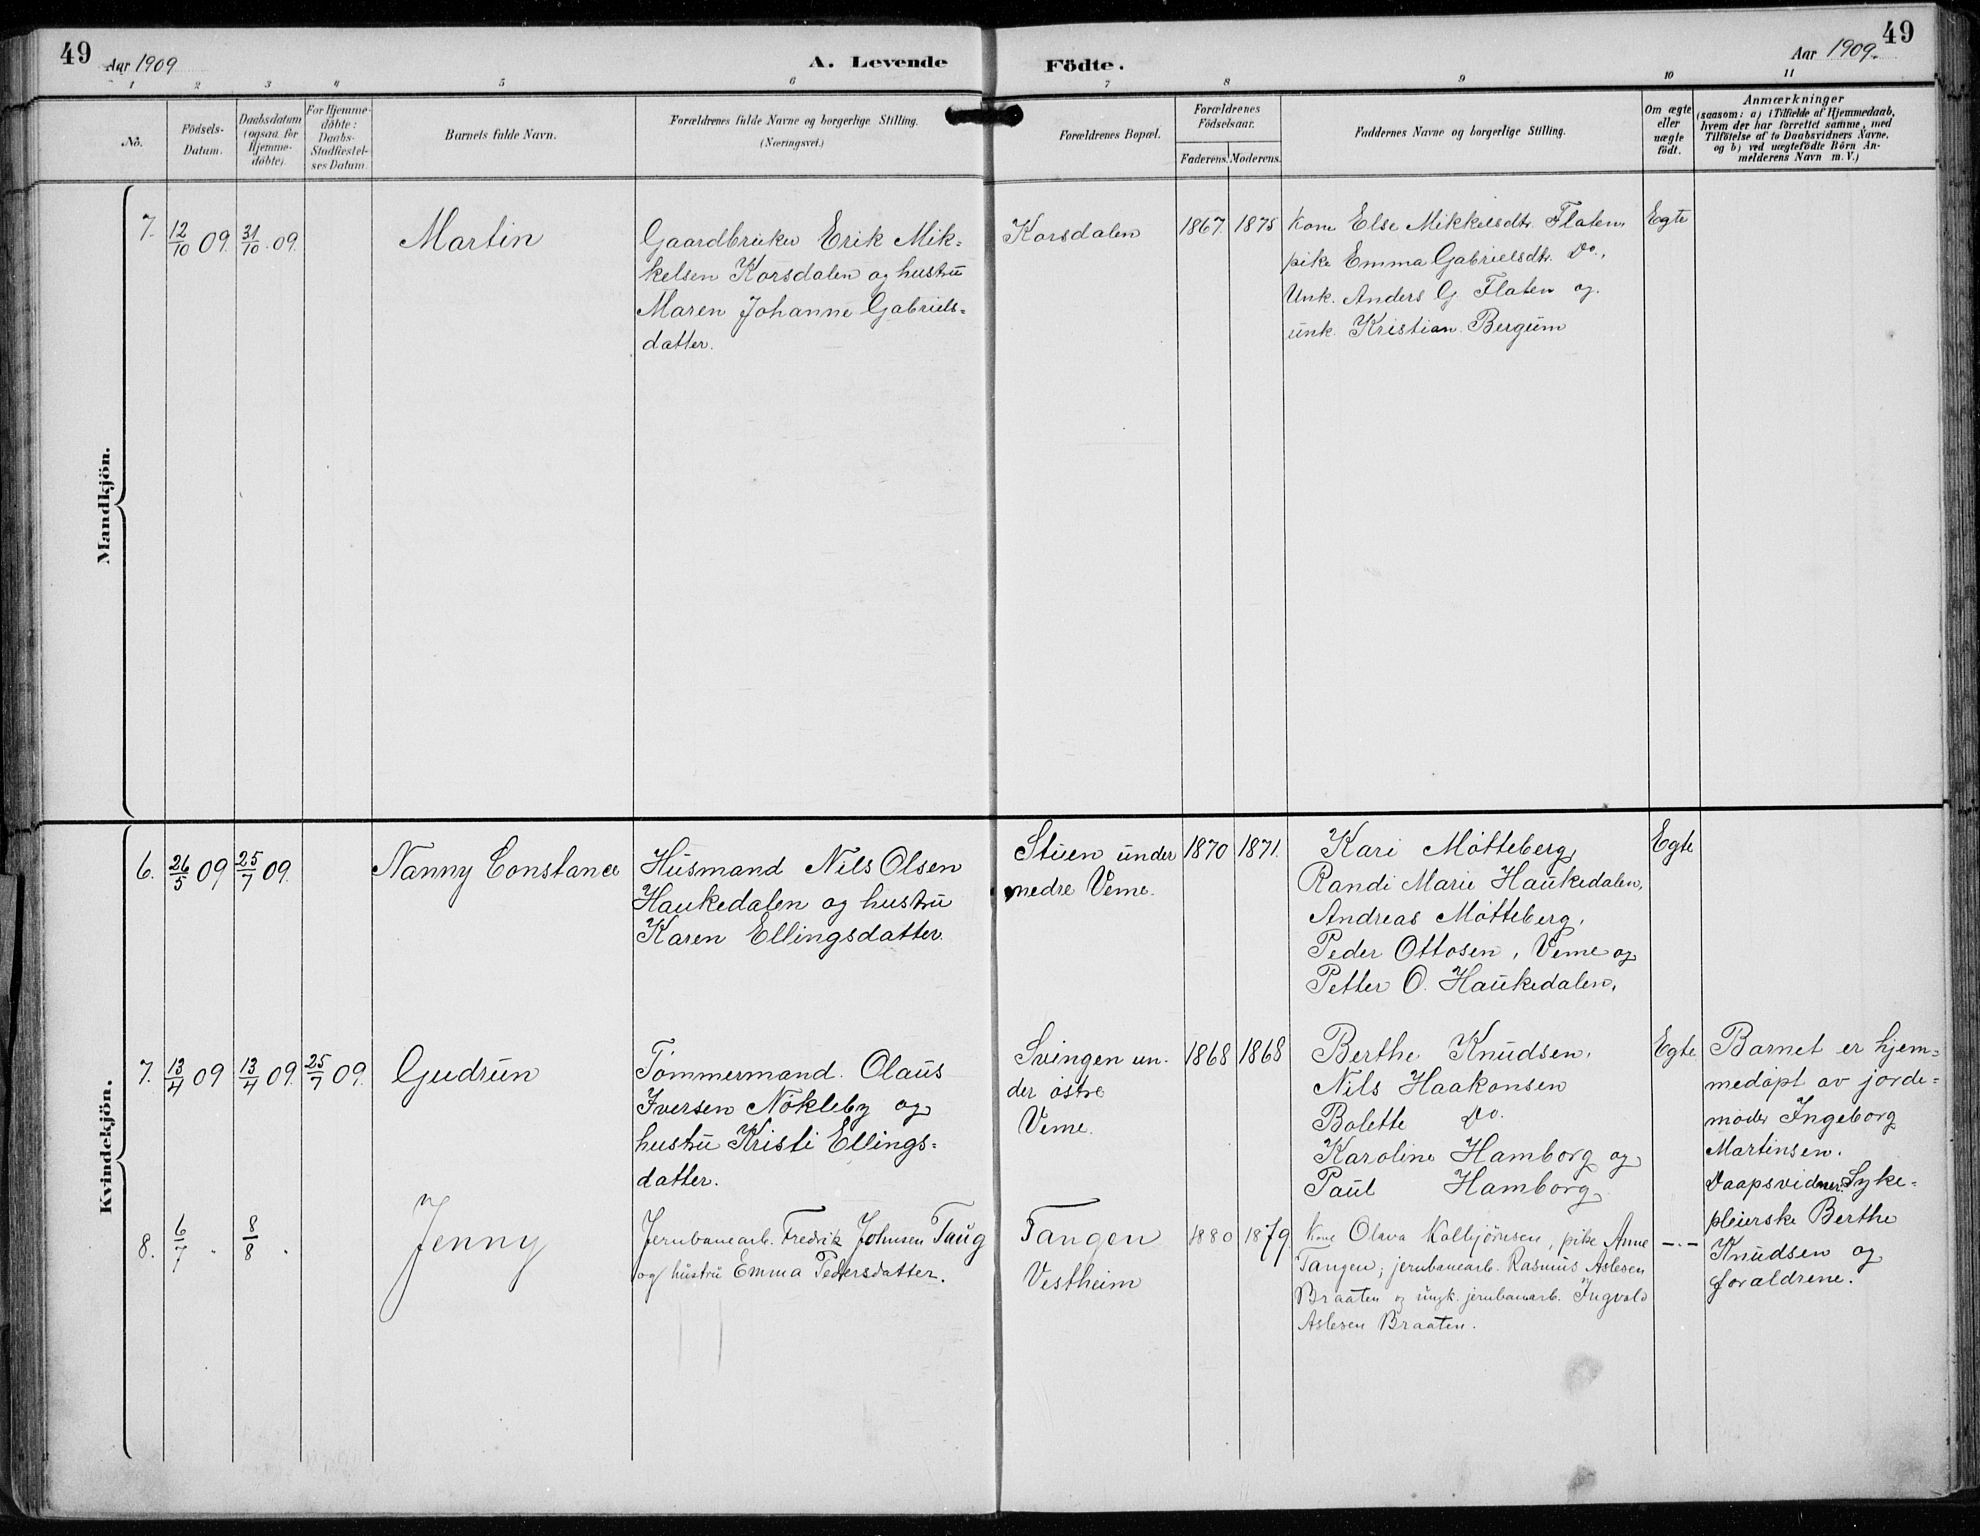 49
Aar 1909
A. Levende
Födte.
Aar 1909.
49
1 2 3 4 5 6 7 8 9 10 11
No.
Födsels-
Datum.
Daabsdatum
(ogsaa for
Hjemme-
döbte).
For Hjemme-
döbte:
Daabs-
Stadfæstel-
ses Datum
Barnets fulde Navn.
Forældrenes fulde Navne og borgerlige Stilling.
(Næringsvei.)
Forældrenes Bopæl.
Forældrenes
Födselsaar.
Faderens. Moderens.
Faddernes Navne og borgerlige Stilling.
Om ægte
eller
uægte
født.
Anmærkninger
(saasom: a) i Tilfælde af Hjemmedaab,
hvem der har forrettet samme, med
Tilföielse af to Daabsvidners Navne.
og b) ved uægtefödte Börn An-
melderens Navn m. V.)
Mandkjön.
7.
12/10 09.
31/10 09.
Martin
Gaardbruker Erik Mik-
kelsen Korsdalen og hustru
Maren Johanne Gabriels-
datter.
Korsdalen
1867. 1875
Kone Else Mikkelsdtr. Flaten,
pike Emma Gabrielsdtr. Do.,
Unk. Anders G. Flaten og
unk. Kristian Bergum
Egte
Kvindekjön.
6.
26/5 09
25/7 09.
Nanny Constance
Husmand Nils Olsen
Haukedalen og hustru
Karen Ellingsdatter.
Stuen under
nedre Veme.
1870 1871.
Kari Møtteberg,
Randi Marie Haukedalen,
Andreas Møtteberg,
Peder Ottosen, Veme og
Petter O. Haukedalen.
Egte
7.
13/4 09
13/4 09.
25/7 09.
Gudrun
Tømmermand Olaus
Iversen Nökleby og
hustru Kristi Ellings-
datter.
Svingen un-
der østre
Veme.
1868 1868
Berthe Knudsen,
Nils Haakonsen
Bolette Do.
Karoline Hamborg og
Paul Hamborg
Egte
Barnet er hjem-
medøpt av jorde-
moder Ingeborg
Martinsen.
Daapsvidner: Syke-
pleierske Berthe
Knudsen og
forældrene.
8.
6/7 "
8/8 "
Jenny
Jernbanearb. Fredrik Johnsen Taug
og hustru Emma Pedersdatter.
Tangen
Vestheim
1880 1879
Kone Olava Kolbjörnsen, pike Anne
Tangen; jernbanearb. Rasmus Aslesen
Braaten og ungk. jernbanearb. Ingvald
Aslesen Braaten.
—"—